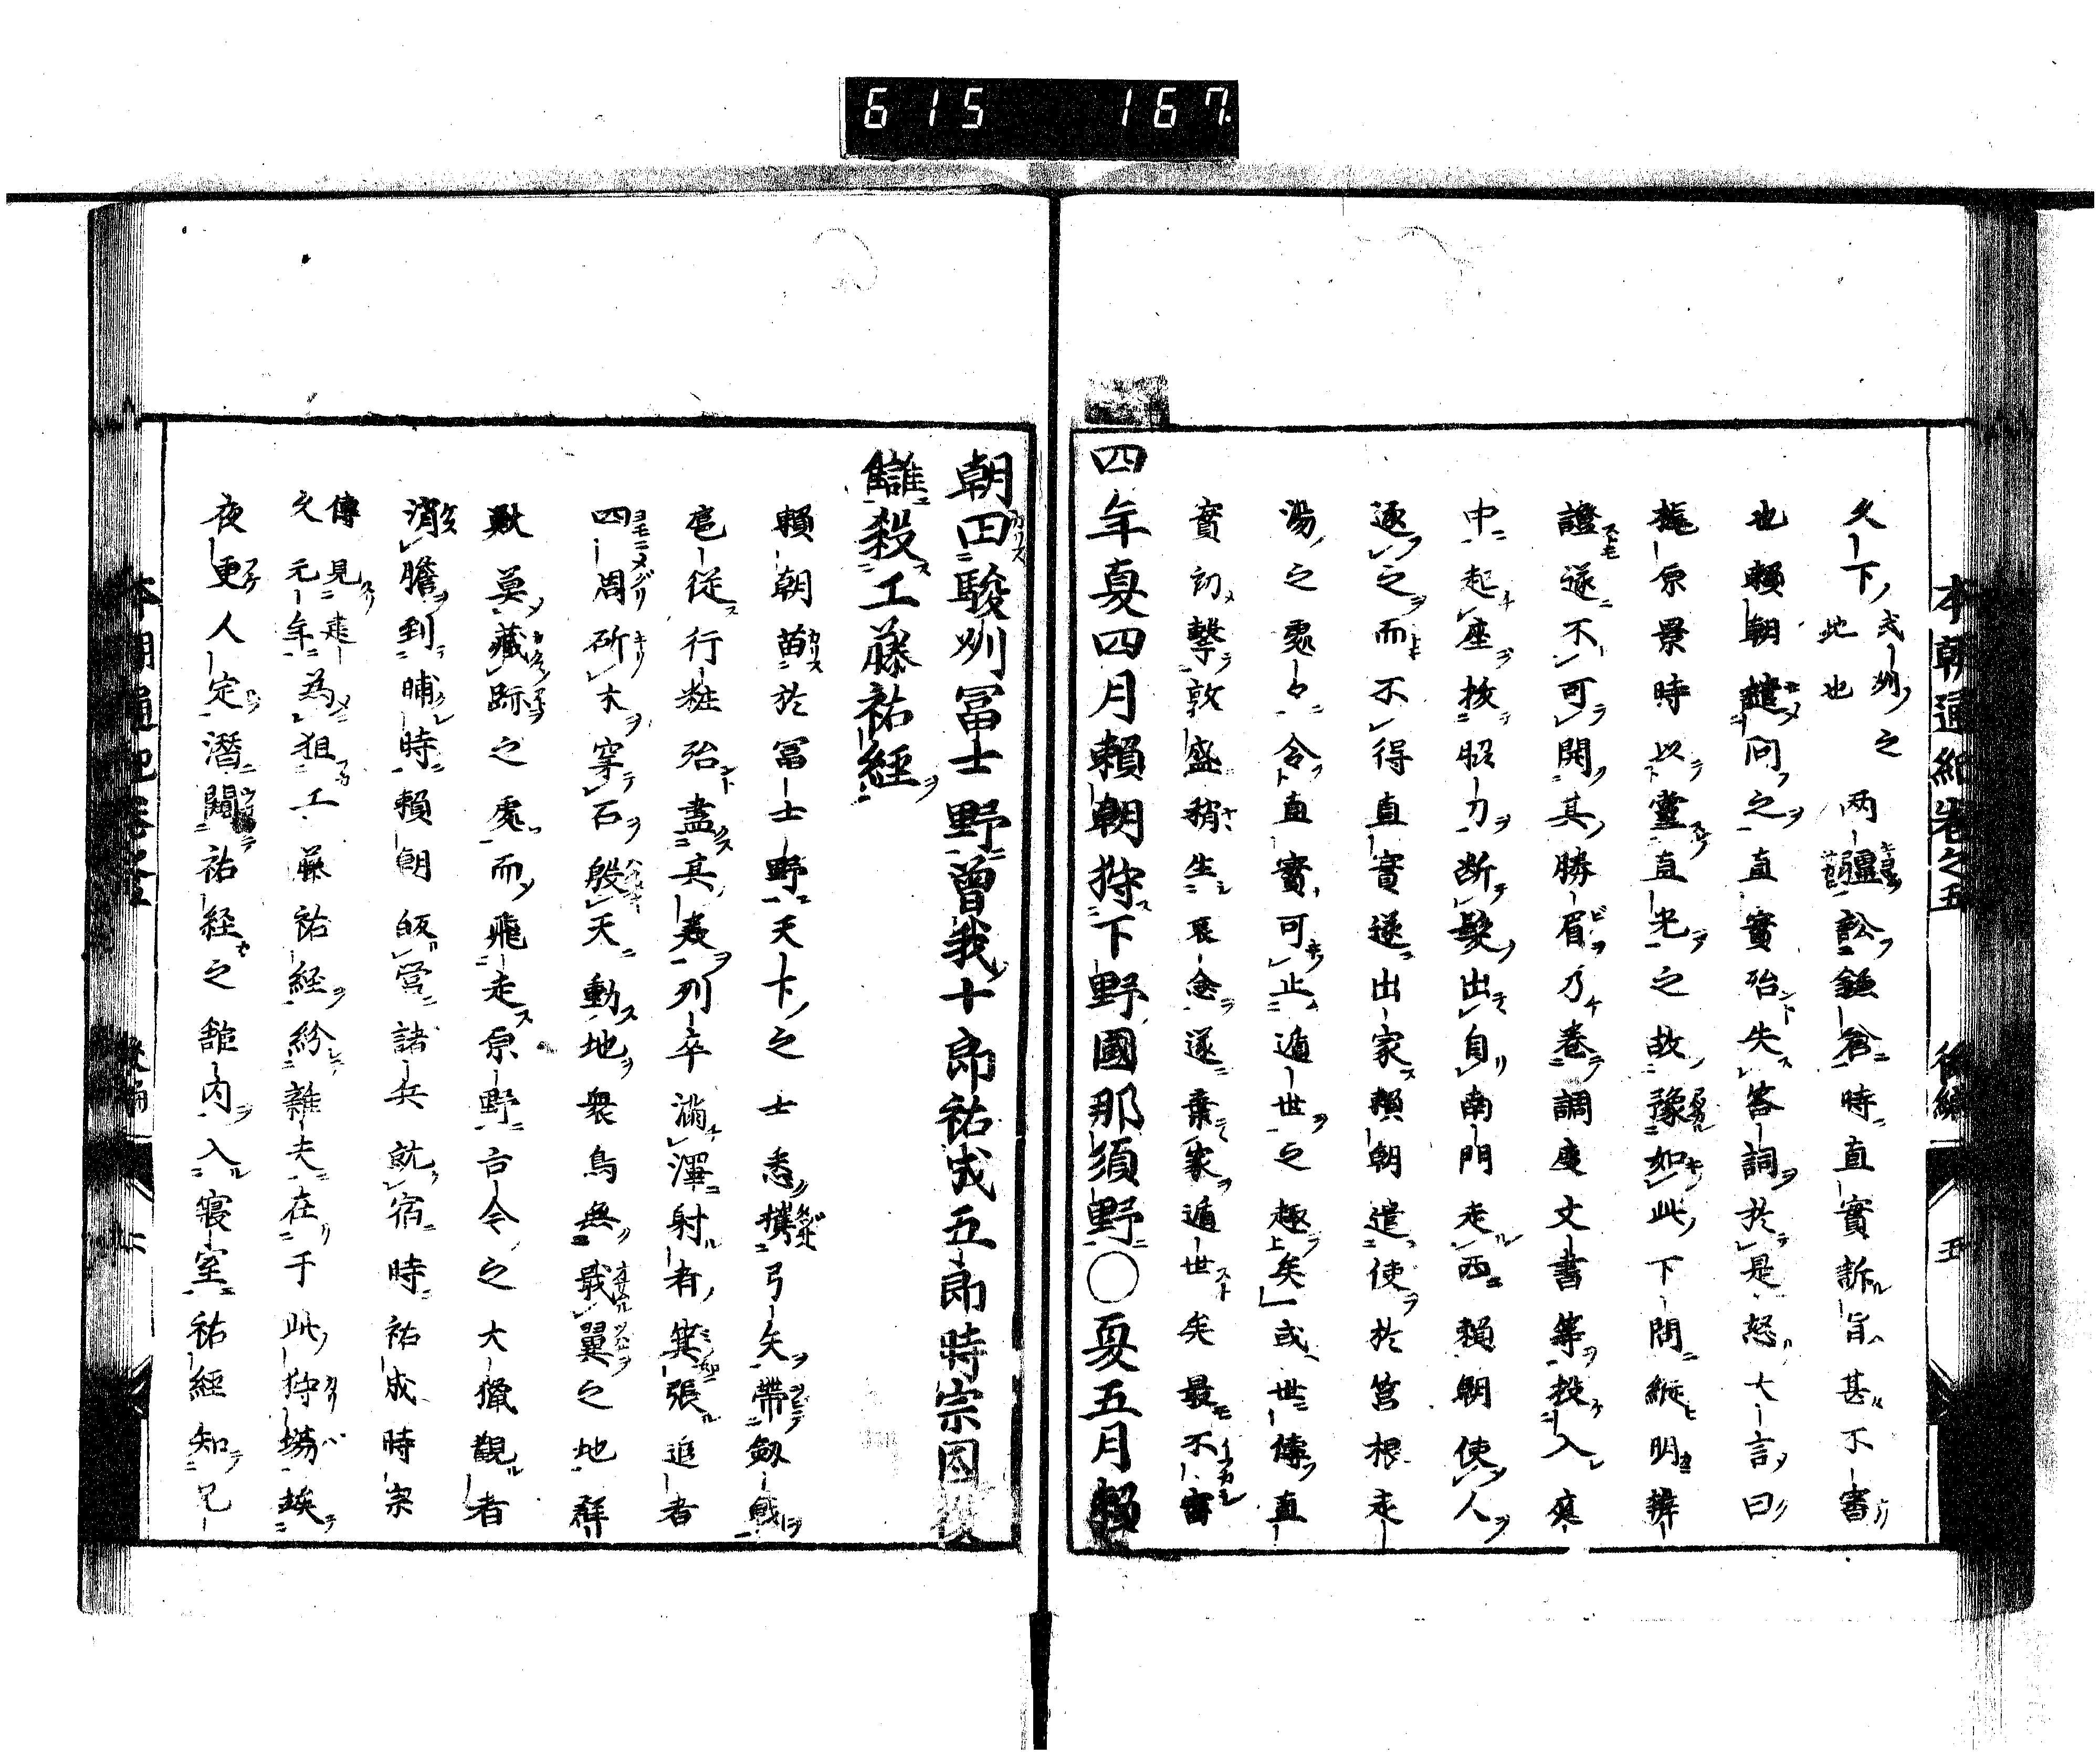 615 167
本朝通紀卷之五 後編 五
久下武州之此也兩疆訟鎌倉時直實訴旨甚不審
也賴朝譴問之直實殆失答詞於是怒大言曰
梶原景時以靈直光之故豫如此下問縱明辨
證遂不可開其勝眉乃卷調度文書等投入庭
中起座拔腰刀斷髮出自南門走西賴朝使人
逐之而不得直實遂出家賴朝遣使於筥根走
湯之處々令直實可止遁世之趣矣或世傳直
實初擊敦盛稍生哀念遂棄家遁世矣最不審
四年夏四月賴朝狩下野國那須野○夏五月賴
朝田駿州冨士野曾我十郎祐成五郎時宗因
讎殺工藤祐經
賴朝苗於冨士野天下之士悉攜弓矢帶劔戟
扈從行粧殆盡其美列卒滿澤射者箕張追者
四周斫木穿石殷天動地衆鳥無戢翼之地群
獸莫藏跡之處而飛走原野古今之大獵觀者
消膽到晡時賴朝皈營諸兵就宿時祐成時宗
傳見建久元年為狙工藤祐經紛雜夫在于此狩塲埃
夜更人定潛闖祐経之舘内入寢室祐經知兄
本朝通紀卷之五 後編